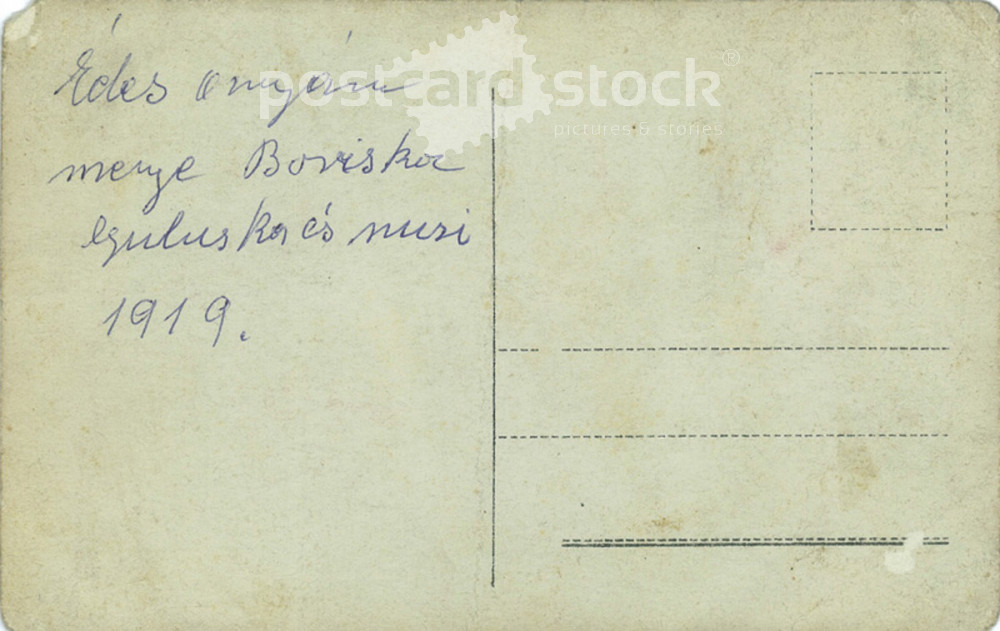 Édes anyám
menye Boriska
Gyuluska és nusi
1919.
postcard stock®
pictures & stories